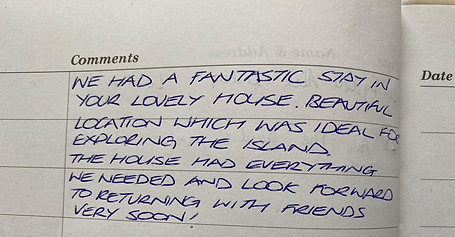 Comments
Date
WE HAD A FANTASTIC STAY IN
YOUR LOVELY HOUSE. BEAUTIFUL
LOCATION WHICH WAS IDEAL FOR
EXPLORING THE ISLAND.
THE HOUSE HAD EVERYTHING
WE NEEDED AND LOOK FORWARD
TO RETURNING WITH FRIENDS
VERY SOON!